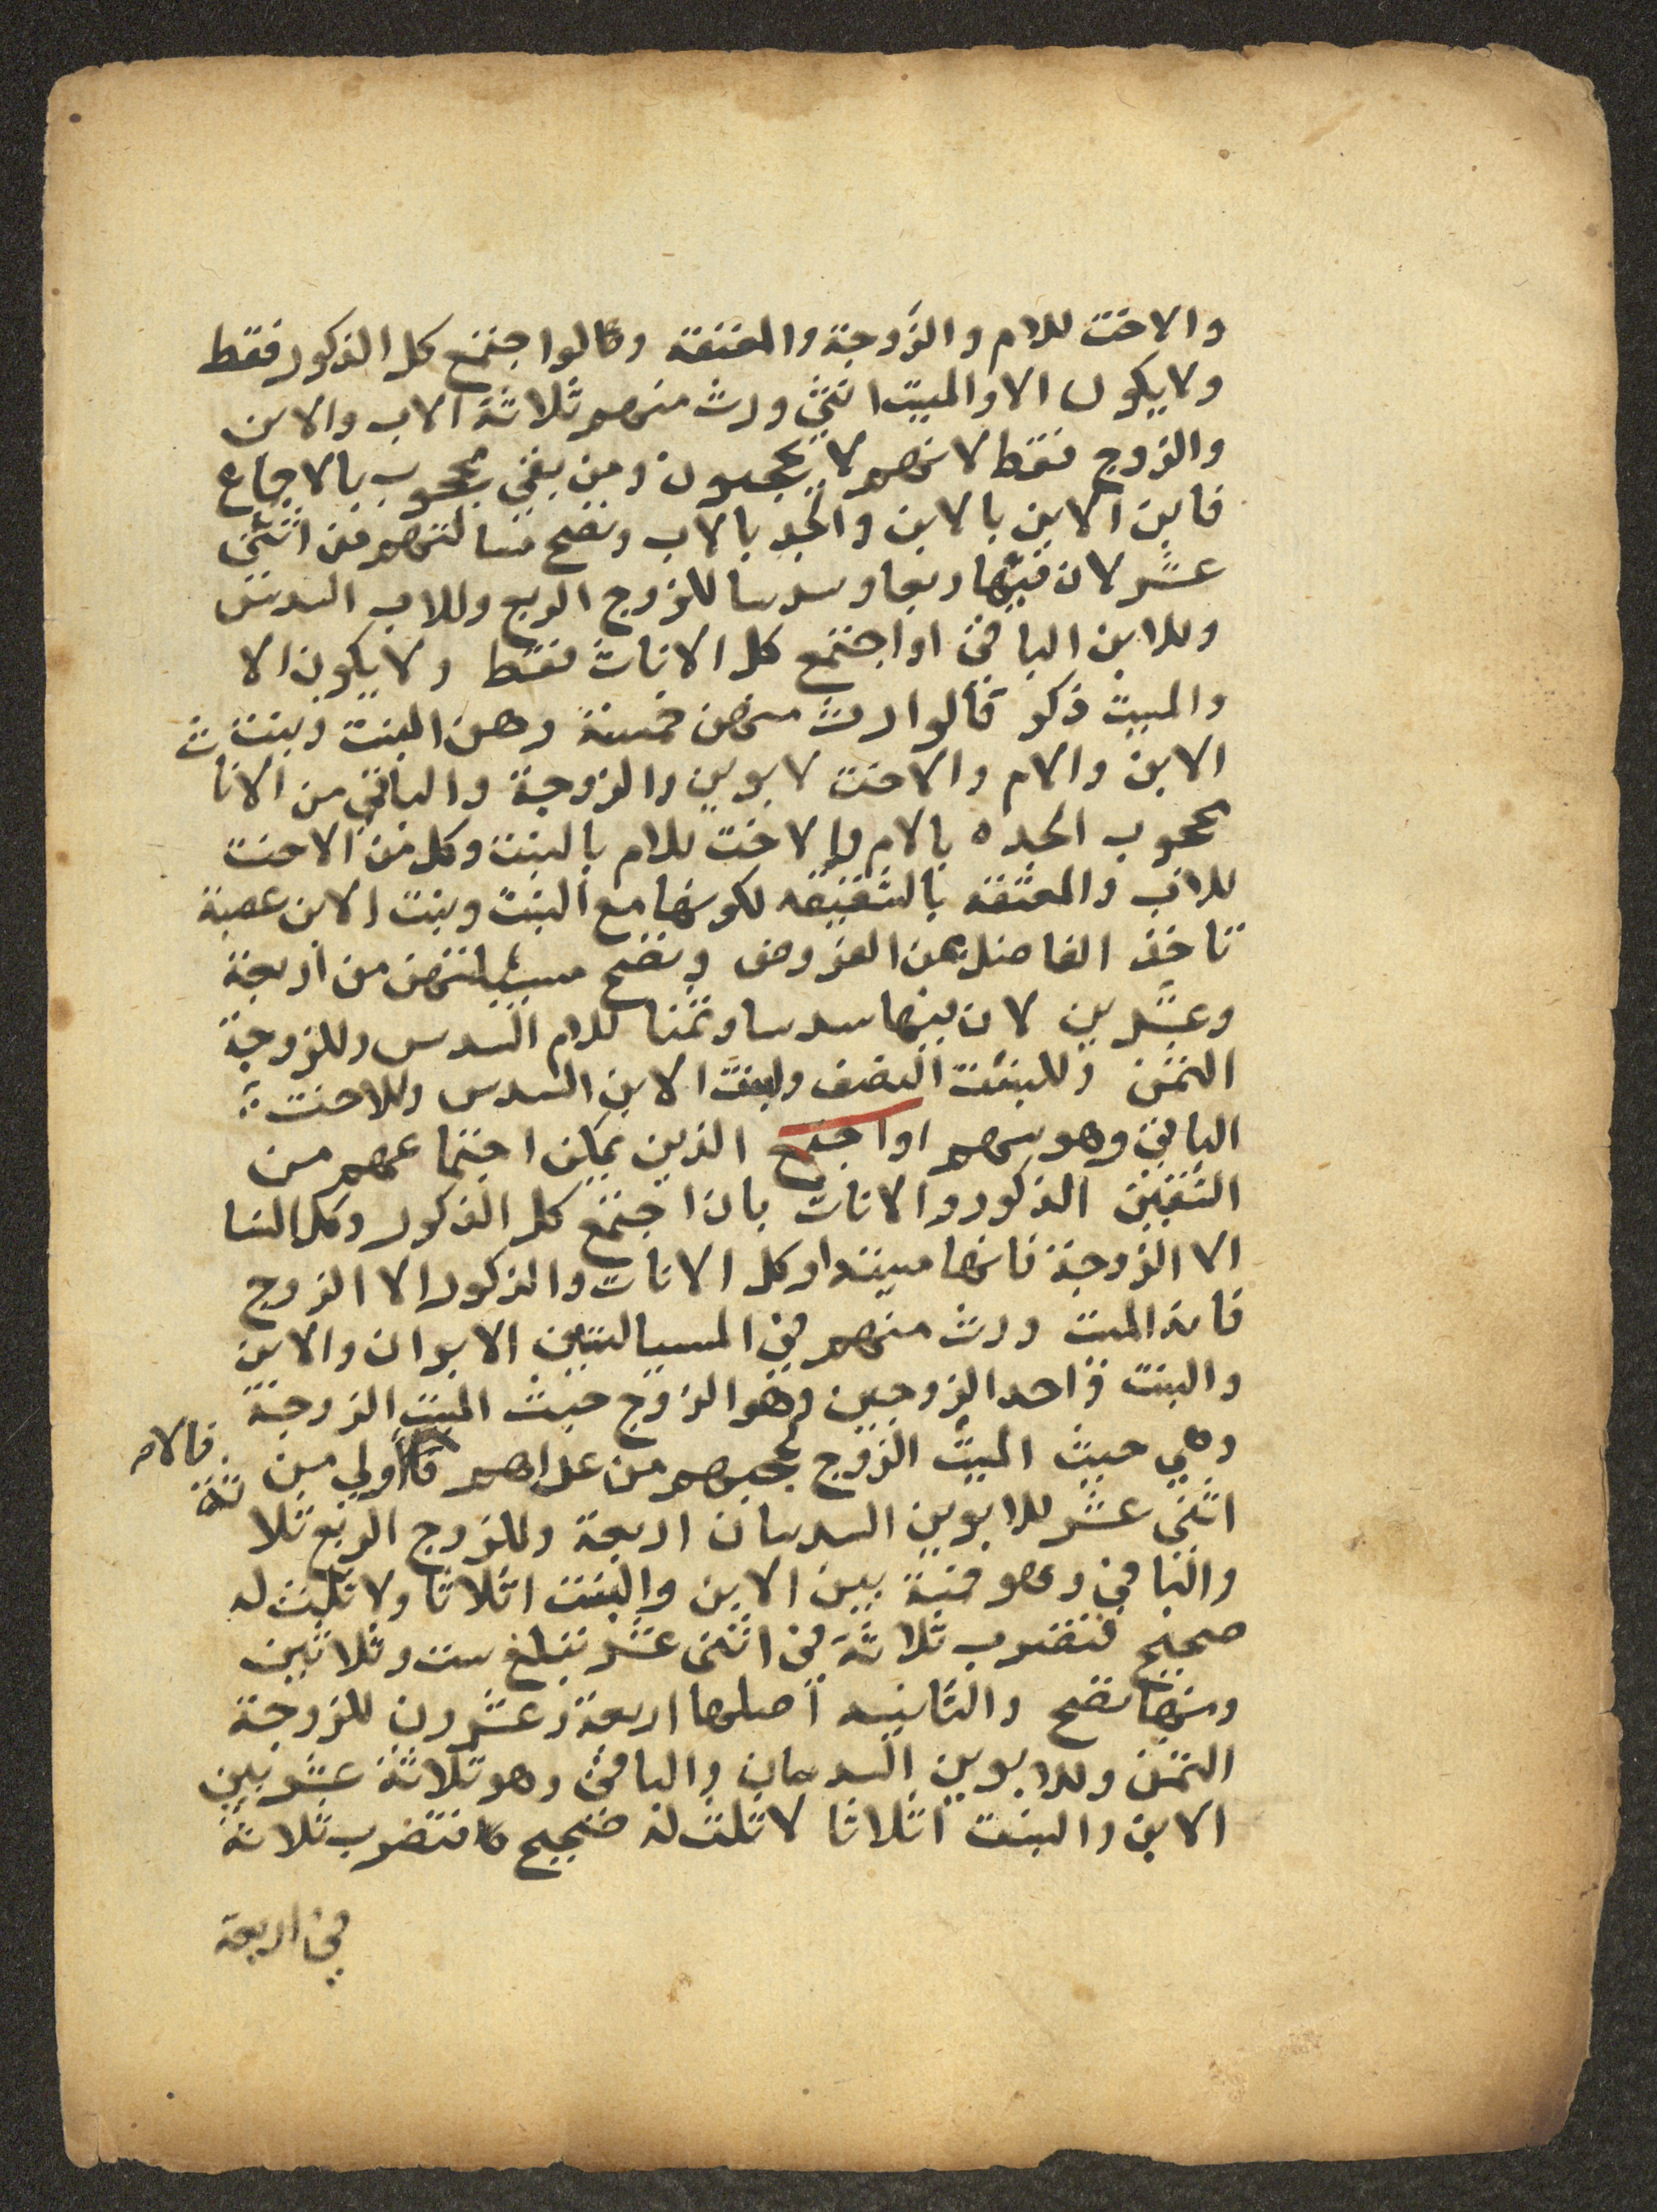 والاخت للام والزوجة والمعتقة وكالوا جتمع كل الذكور فقط
ولا يكون الا والميت انثى ورث منهم ثلاثة الاب والابن
والزوج فقط لانهم لا يحجبون ومن بقي محجوب بالاجماع
فابن الابن بالابن والجد بالاب وتصح مسالتهم من اثنى
عشر لان فيها ربعا وسدسا للزوج الربع وللاب السدس
وللابن الباقي او اجتمع كل الاناث فقط ولا يكون الا
والميت ذكر فالوارث منهن خمسة وهن البنت وبنت
الابن والام والاخت لابوين والزوجة والباقي من الاناث
محجوب الجده بالام والاخت للام بالبنت وكل من الاخت
للاب والمعتقة بالشقيقه لكونها مع البنت وبنت الابن عصبة
تاخذ الفاضل عن الفروض وتصح مسالتهن من اربعة
وعشرين لان فيها سدسا وثمنا للام السدس وللزوجة
الثمن وللبنت النصف ولبنت الابن السدس وللاخت
الباقي وهو سهم او اجتمع الذين يمكن اجتماعهم من
الثقين الذكور والاناث بان اجتمع كل الذكور وكل النسا
الا الزوجة فانها ميتة او كل الاناث والذكور الا الزوج
فانه الميت ورث منهم في المسيالتين الابوان والابن
والبنت واحد الزوجين وهو الزوج حيث الميت الزوجة
وهي حيث الميت الزوج لحجبهم من عداهم فالاولي من فالام
اثنى عشر للابوين السدسان اربعة وللزوج الربع ثلاثة
والباقي وهو خمسة بين الابن والبنت اثلاثا ولا ثلث له
صحيح فتضرب ثلاثة في اثنى عشر تبلغ ست وثلاثين
ومنها تصح والثانيه اصلها اربعة وعشرون للزوجة
الثمن وللابوين السدسان والباقي وهو ثلاثة عشر بين
الابن والبنت اثلاثا لا ثلث له صحيح فتضرب ثلاثة
في اربعة